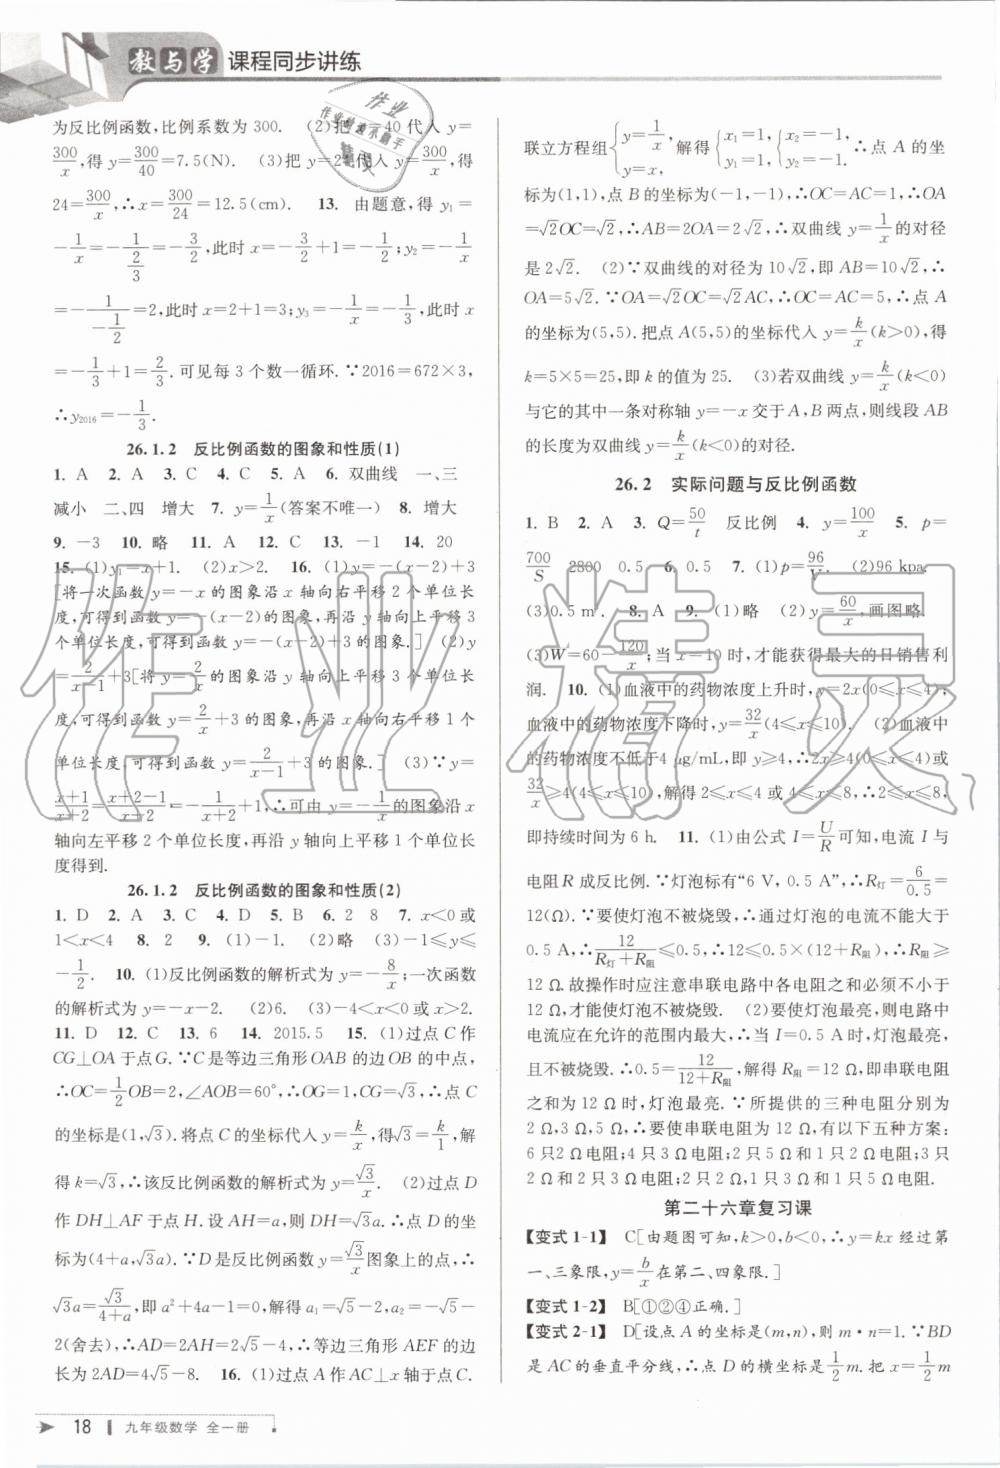 教与学 课程同步讲练
为反比例函数,比例系数为 300. (2)把 x=40 代入 y=
300/x,得 y=300/40=7.5(N). (3)把 y=24 代入 y=300/x,得
24=300/x,∴x=300/24=12.5(cm). 13. 由题意,得 y₁=
-1/x=-1/(2/3)=-3/2,此时 x=-3/2+1=-1/2;y₂=-1/x
=-1/(-1/2)=2,此时 x=2+1=3;y₃=-1/x=-1/3,此时 x
=-1/3+1=2/3.可见每 3 个数一循环.∵2016=672×3,
∴y₂₀₁₆=-1/3.
26.1.2 反比例函数的图象和性质(1)
1. A 2. A 3. C 4. C 5. A 6. 双曲线 一、三
减小 二、四 增大 7. y=1/x(答案不唯一) 8. 增大
9. -3 10. 略 11. A 12. C 13. -1 14. 20
15. (1)y₁=x+1. (2)x>2. 16. (1)y=-(x-2)+3
[将一次函数 y=-x 的图象沿 x 轴向右平移 2 个单位长
度,可得到函数 y=-(x-2)的图象,再沿 y 轴向上平移 3
个单位长度,可得到函数 y=-(x-2)+3 的图象.] (2)y
=2/(x-1)+3[将 y=2/x 的图象沿 y 轴向上平移 3 个单位长
度,可得到函数 y=2/x+3 的图象,再沿 x 轴向右平移 1 个
单位长度,可得到函数 y=2/(x-1)+3 的图象.] (3)∵y=
(x+1)/(x+2)=(x+2-1)/(x+2)=-1/(x+2)+1,∴可由 y=-1/x的图象沿 x
轴向左平移 2 个单位长度,再沿 y 轴向上平移 1 个单位长
度得到.
26.1.2 反比例函数的图象和性质(2)
1. D 2. A 3. C 4. D 5. B 6. 1.2 8 7. x<0 或
1<x<4 8. 2 9. (1)-1. (2)略 (3)-1≤y≤
-1/2. 10. (1)反比例函数的解析式为 y=-8/x;一次函数
的解析式为 y=-x-2. (2)6. (3)-4<x<0 或 x>2.
11. D 12. C 13. 6 14. 2015.5 15. (1)过点 C 作
CG⊥OA 于点 G.∵C 是等边三角形 OAB 的边 OB 的中点,
∴OC=1/2OB=2,∠AOB=60°,∴OG=1,CG=√3,∴点 C
的坐标是(1,√3).将点 C 的坐标代入 y=k/x,得√3=k/1,解
得 k=√3,∴该反比例函数的解析式为 y=√3/x. (2)过点 D
作 DH⊥AF 于点 H.设 AH=a,则 DH=√3a.∴点 D 的坐
标为(4+a,√3a).∵D 是反比例函数 y=√3/x图象上的点,∴
√3a=√3/(4+a),即 a²+4a-1=0,解得 a₁=√5-2,a₂=-√5-
2(舍去),∴AD=2AH=2√5-4,∴等边三角形 AEF 的边
长为 2AD=4√5-8. 16. (1)过点 A 作 AC⊥x 轴于点 C.
联立方程组{y=1/x, y=x,解得{x₁=1, y₁=1,{x₂=-1, y₂=-1.∴点 A 的坐
标为(1,1),点 B 的坐标为(-1,-1),∴OC=AC=1,∴OA
=√2OC=√2,∴AB=2OA=2√2,∴双曲线 y=1/x的对径
是 2√2. (2)∵双曲线的对径为 10√2,即 AB=10√2,∴
OA=5√2.∵OA=√2OC=√2AC,∴OC=AC=5,∴点 A
的坐标为(5,5).把点 A(5,5)的坐标代入 y=k/x(k>0),得
k=5×5=25,即 k 的值为 25. (3)若双曲线 y=k/x(k<0)
与它的其中一条对称轴 y=-x 交于 A,B 两点,则线段 AB
的长度为双曲线 y=k/x(k<0)的对径.
26.2 实际问题与反比例函数
1. B 2. A 3. Q=50/t 反比例 4. y=100/x 5. p=
700/S 2800 0.5 6. 0.5 7. (1)p=96/V. (2)96 kpa.
(3)0.5 m³. 8. A 9. (1)略 (2)y=60/x,画图略.
(3)W=60-120/x;当 x=10 时,才能获得最大的日销售利
润. 10. (1)血液中的药物浓度上升时,y=2x(0≤x≤4);
血液中的药物浓度下降时,y=32/x(4≤x≤10). (2)血液中
的药物浓度不低于 4 μg/mL,即 y≥4,∴2x≥4(0≤x≤4)或
32/x≥4(4≤x≤10),解得 2≤x≤4 或 4≤x≤8,∴2≤x≤8,
即持续时间为 6 h. 11. (1)由公式 I=U/R可知,电流 I 与
电阻 R 成反比例.∵灯泡标有“6 V, 0.5 A”,∴R灯=6/0.5=
12(Ω).∵要使灯泡不被烧毁,∴通过灯泡的电流不能大于
0.5 A,∴12/(R灯+R阻)≤0.5,∴12≤0.5×(12+R阻),∴R阻≥
12 Ω.故操作时应注意串联电路中各电阻之和必须不小于
12 Ω,才能使灯泡不被烧毁. (2)要使灯泡最亮,则电路中
电流应在允许的范围内最大,∴当 I=0.5 A 时,灯泡最亮,
且不被烧毁.∴0.5=12/(12+R阻),解得 R阻=12 Ω,即串联电阻
之和为 12 Ω 时,灯泡最亮.∵所提供的三种电阻分别为
2 Ω,3 Ω,5 Ω,∴要使串联电阻为 12 Ω,有以下五种方案:
6 只 2 Ω 电阻;4 只 3 Ω 电阻;2 只 5 Ω 和 1 只 2 Ω 电阻;3 只
2 Ω 和 2 只 3 Ω 电阻;2 只 2 Ω,1 只 3 Ω 和 1 只 5 Ω 电阻.
第二十六章复习课
【变式 1-1】 C[由题图可知,k>0,b<0,∴y=kx 经过第
一、三象限,y=b/x在第二、四象限.]
【变式 1-2】 B[①②④正确.]
【变式 2-1】 D[设点 A 的坐标是(m,n),则 m·n=1.∵BD
是 AC 的垂直平分线,∴点 D 的横坐标是1/2m.把 x=1/2m
18 九年级数学 全一册
作业精灵